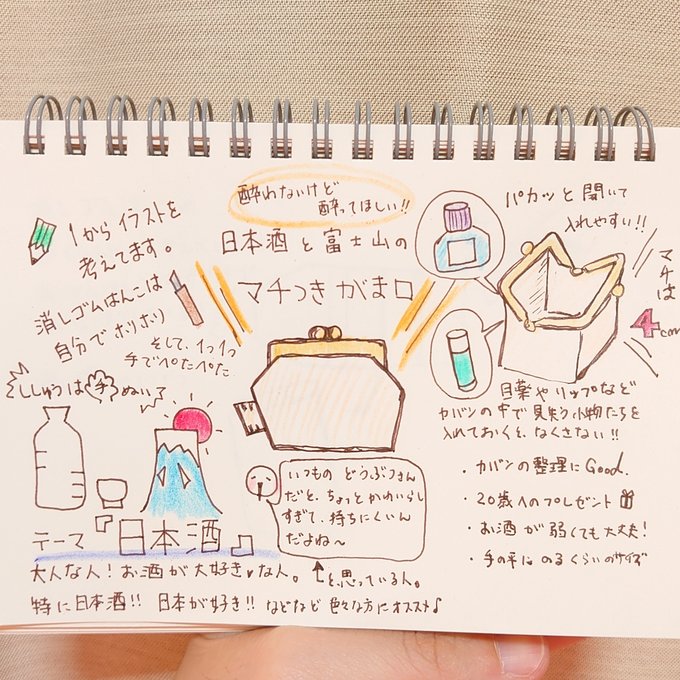 酔わないけど
酔ってほしい!!
日本酒と富士山の
マチつきがま口
1からイラストを
考えてます。
消しゴムはんこは
自分でホリホリ
そして、1つ1つ
手でペたペた。
ししゅうは手ぬい
パカッと開いて
入れやすい!!
マチは
4cm
目薬やリップなど
カバンの中で見失う小物たちを
入れておくと、なくさない!!
・カバンの整理にGood.
・20歳へのプレゼント
・お酒が弱くても大丈夫!
・手の平にのるくらいのサイズ
いつものどうぶつさん
だと、ちょっとかわいらし
すぎて、持ちにくいん
だよね〜
↑と、思っている人。
テーマ『日本酒』
大人な人!お酒が大好き♥な人。
特に日本酒!! 日本が好き!! などなど 色々な方にオススメ♪